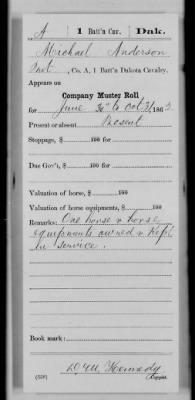 A | 1 Batt'n Cav. | Dak.
Michael Anderson
Pvt, Co. A, 1 Batt'n Dakota Cavalry.
Appears on
Company Muster Roll
for June 30" to Oct 31, 1863
Present or absent Present
Stoppage, $ 100 for
Due Gov't, $ 100 for
Valuation of horse, $ 100
Valuation of horse equipments, $ 100
Remarks: One horse & horse
equipments owned & Kept
in service.
Book mark:
Kennedy
Copyist.